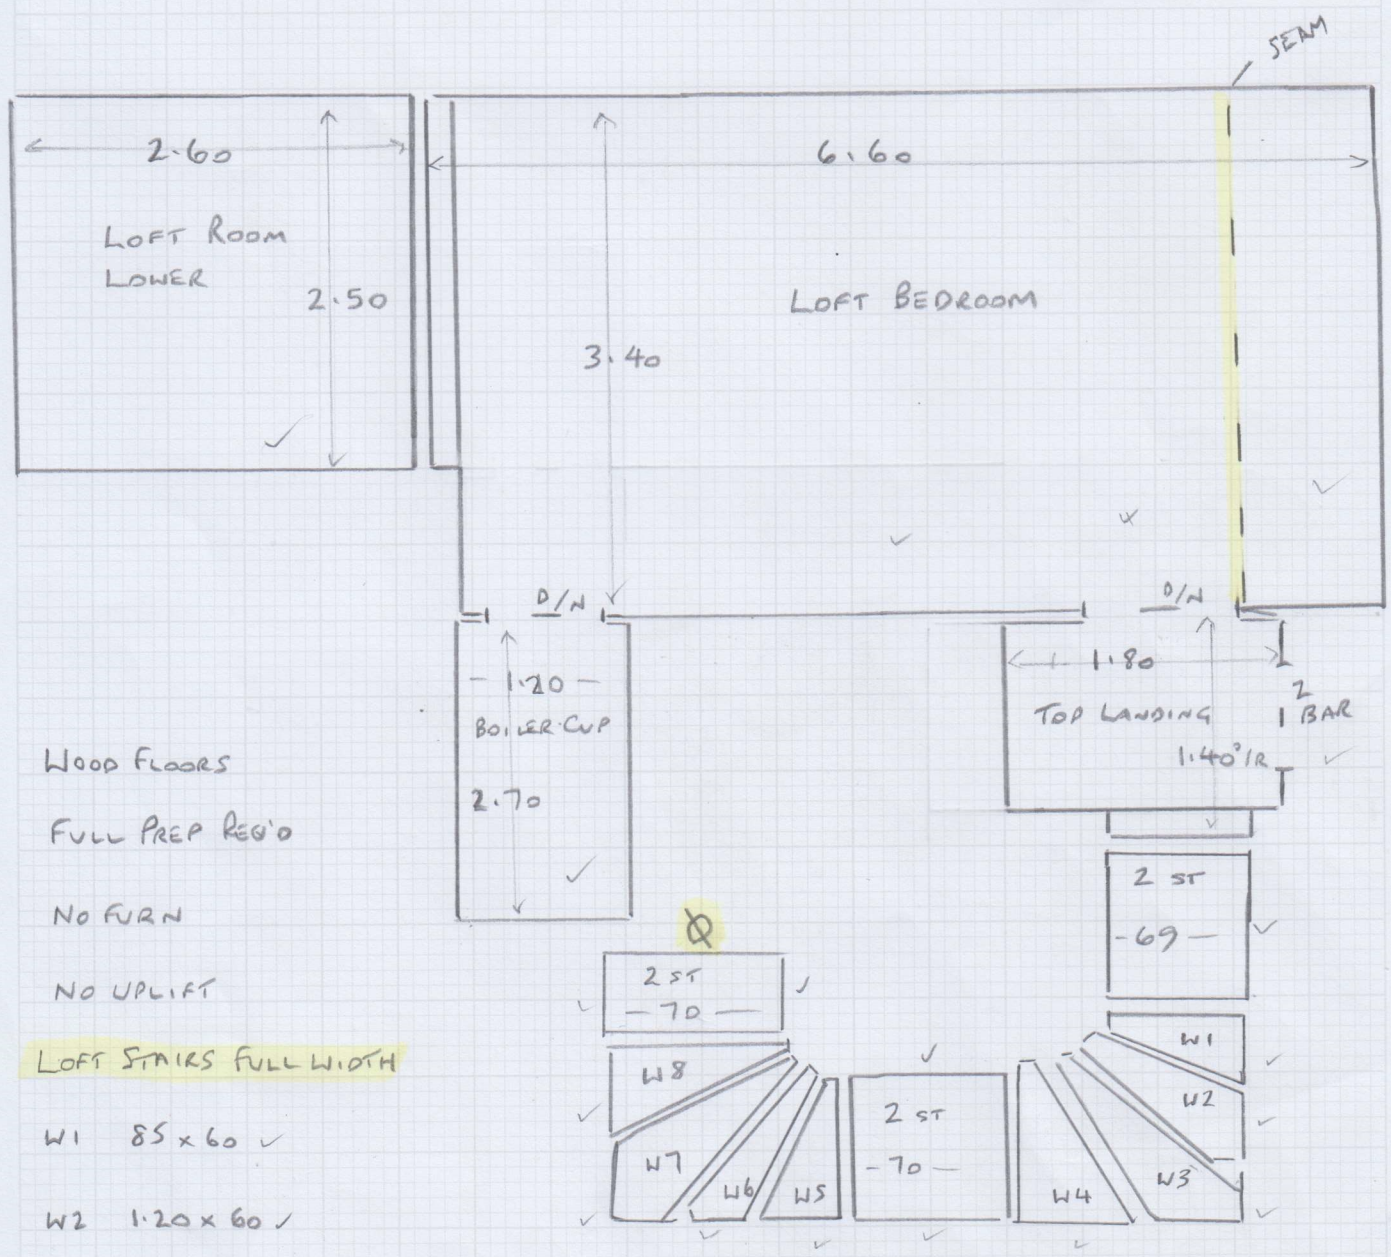 SEAM
2.60
6.60
LOFT ROOM
LOWER
2.50
LOFT BEDROOM
3.40
D/N
D/N
1.20
BOILER CUP
2.70
1.80
TOP LANDING
2
BAR
1.40
WOOD FLOORS
FULL PREP REQ'D
NO FURN
NO UPLIFT
LOFT STAIRS FULL WIDTH
W1 85 x 60 ✓
W2 1.20 x 60 ✓
2 ST
-69-
2 ST
-70-
2 ST
-70-
W1
W2
W3
W4
W5
W6
W7
W8